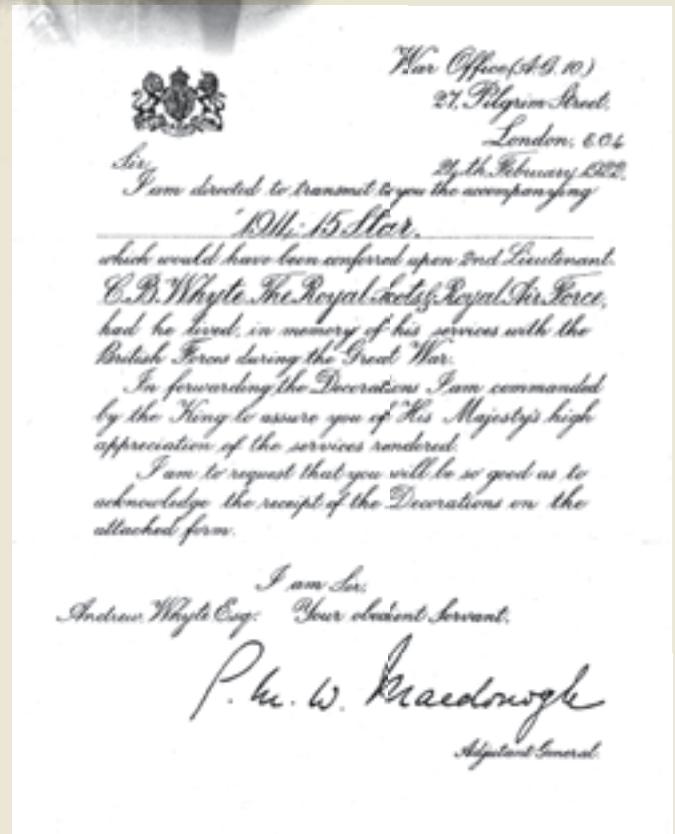 War Office (A.G.10)
27, Pilgrim Street,
London, E.C.4.
24th February, 1922.
Sir,
I am directed to transmit to you the accompanying
"1914-15 Star.
which would have been conferred upon 2nd Lieutenant
C.B. Whyte, The Royal Scots & Royal Air Force,
had he lived, in memory of his services with the
British Forces during the Great War.
In forwarding the Decorations I am commanded
by the King to assure you of His Majesty's high
appreciation of the services rendered.
I am to request that you will be so good as to
acknowledge the receipt of the Decorations on the
attached form.
I am Sir,
Andrew Whyte Esq. Your obedient Servant,
P. M. W. Macdonogh
Adjutant General.